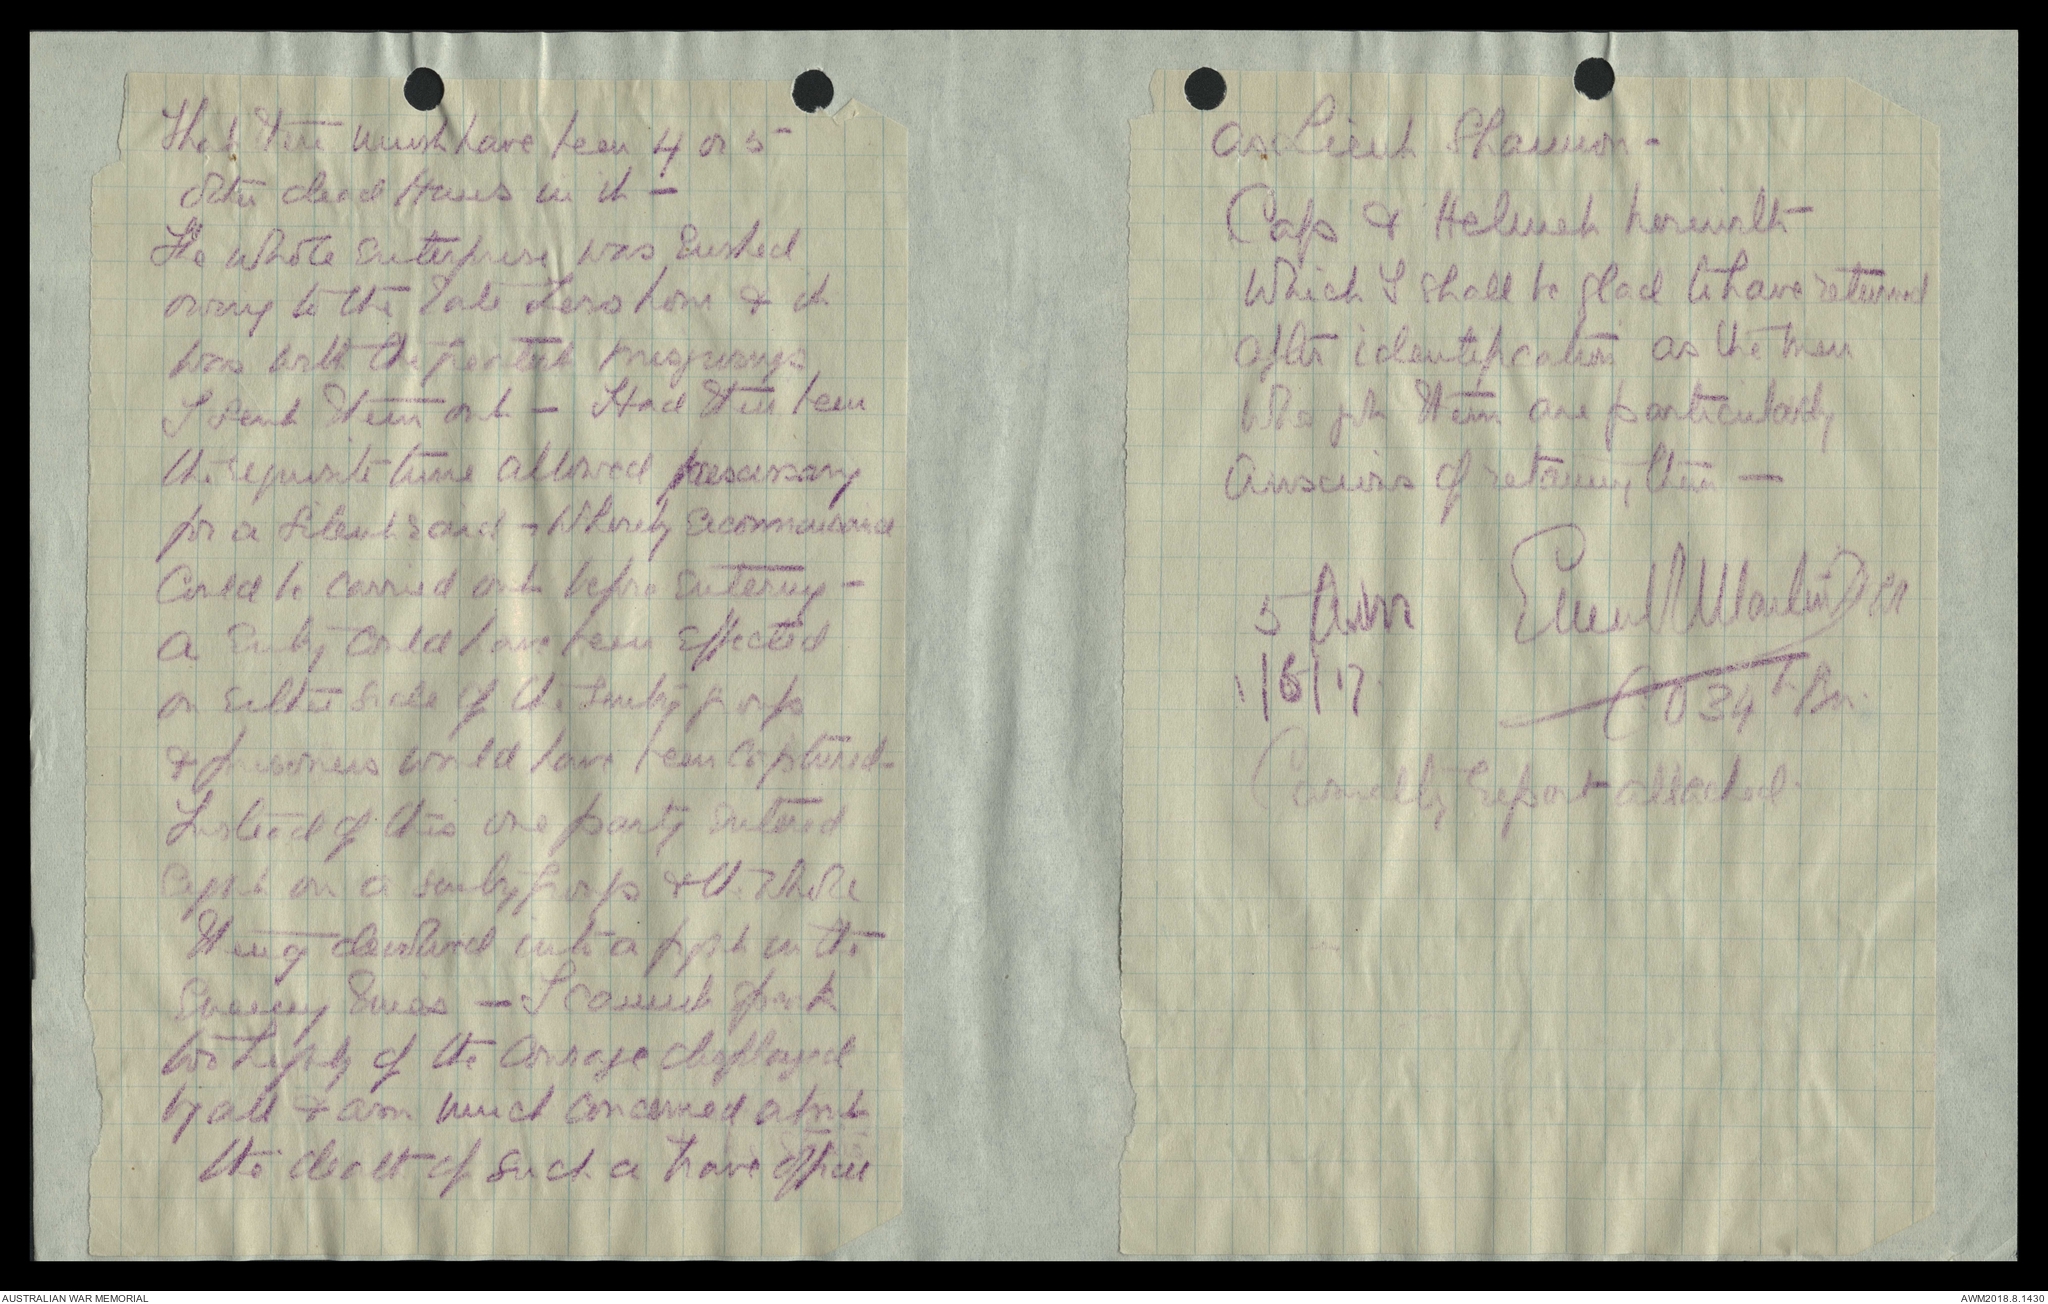 that there must have been 4 or 5
other dead Huns in it -
The whole enterprise was rushed
owing to the late Zero hour & it
was with the greatest misgivings
I sent them out - Had there been
the requisite time allowed necessary
for a silent raid - whereby reconnaissance
could be carried out before entering -
a entry could have been effected
on either side of the sentry group
& prisoners would have been captured -
Instead of this one party entered
right on a sentry group & the whole
thing devolved into a fight in the
enemy lines - I cannot speak
too highly of the courage displayed
by all & am much concerned about
the death of such a brave officer
as Lieut Shannon -
Caps & Helmet herewith
which I shall be glad to have returned
after identification as the men
who got them are particularly
anxious of retaining them -
5 am
1/6/17
CO 34th Bn.
Casualty report attached.
AUSTRALIAN WAR MEMORIAL
AWM2018.8.1430